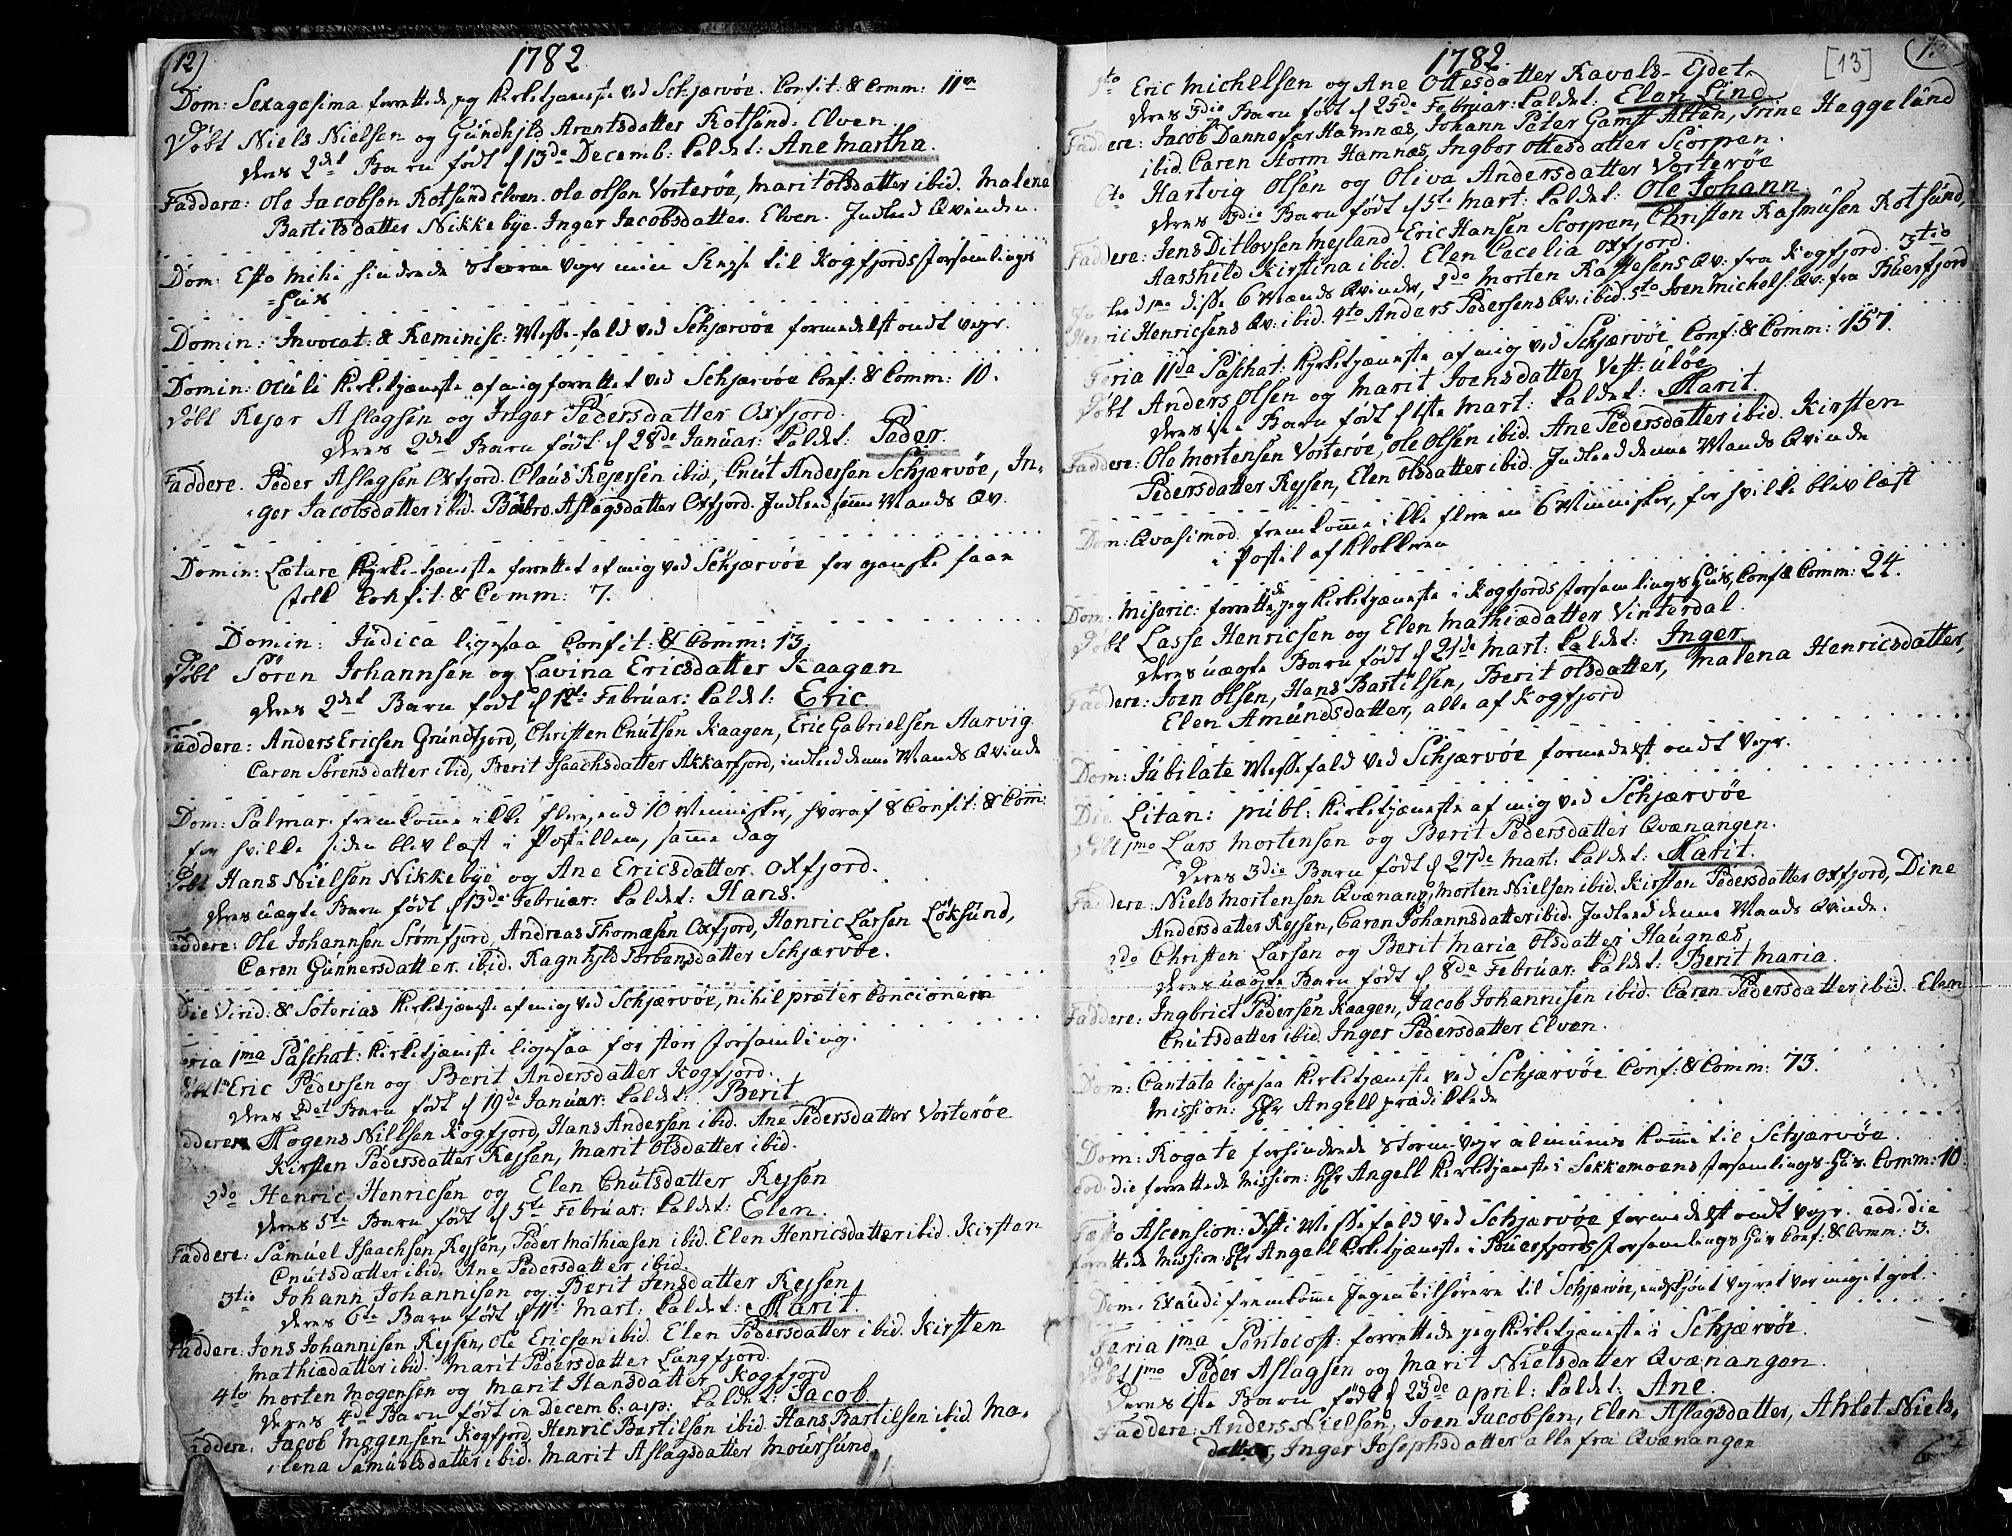 12)
1782
Dom: Sexagesima forrettede jeg Kirketjeneste ved Schjærvöe. Confit: & Comm: 11
Döbt Niels Nielsen og Gundhild Arentsdatter Rotsund-Elven.
deres 2det Barn födt d 13de Decemb: kaldet: Ane Martha.
Faddere: Ole Jacobsen Rotsund Elven. Ole Olsen Vorteröe, Marit Olsdatter ibid. Malena
Bartilsdatter Nikkebye. Inger Jacobsdatter Elven. Indleed Qvinden.
Dom: Esto mihi hindrede Storm veyr min Reyse til Kogfjords forsamlings
=huus
Domin: Invocat: & Reminisc: Messe-fald ved Schjærvöe formedelst ondt veyr.
Domin: Oculi Kirketjeneste af mig forrettet ved Schjærvöe Conf: & Comm: 10.
Döbt Rejar Aslagsen og Inger Pedersdatter Oxfjord.
deres 2det Barn födt d 28de Januar: kaldet: Peder.
Faddere. Peder Aslagsen Oxfjord. Claus Rejersen ibid, Cnut Andersen Schjærvöe, In-
ger Jacobsdatter ibid. Babro Aslagsdatter Oxfjord. Indleed samme Mands Qv.
Domin: Lætare Kyrke-tjeneste forrettet af mig ved Schjærvöe for ganske faae
folk Confit: & Comm: 7.
Domin: Judica ligesaa Confit: & Comm: 13.
Döbt Sören Johannsen og Lavina Ericsdatter Kaagen
deres 2det Barn födt d 12te Februar: kaldet: Eric.
Faddere: Anders Ericsen Grundfjord, Christen Cnutsen Kaagen, Eric Gabrielsen Aarvig
Caren Sörensdatter ibid, Berit Isaachsdatter Akkarfjord, indleed denne Mands Qvinde
Dom: Palmar. fremkomme ikke flere, end 10 Mennisker, hvoraf 8 Confit: & Com:
for hvilke siden blev læst i Postillen, samme dag
Döbt Hans Nielsen Nikkebye og Ane Ericsdatter. Oxfjord.
deres uægte Barn födt d 13de Februar: kaldet: Hans.
Faddere: Ole Johannsen Srömfjord, Andreas Thomæsen Oxfjord, Henric Larsen Löksund,
Caren Gunnersdatter. ibid. Ragnhild Torbensdatter Schjærvöe.
Die Virid: & Soterias Kirketjeneste af mig ved Schjærvöe, nihil præter Concionem
Feria 1ma Paschat: Kirketjeneste ligesaa for stor forsamling.
Döbt 1mo Eric Pedersen og Berit Andersdatter Kogfjord.
deres 2det Barn födt d 19de Januar: kaldet: Berit
Faddere: Mogens Nillsen Kogfjord, Hans Andersen ibid. Ane Pedersdatter Vorteröe
Kirsten Pedersdatter Rejsen, Marit Olsdatter ibid.
2do Henric Henricsen og Elen Cnutsdatter Rejsen
deres 5te Barn födt d 5te Februar: kaldet: Elen.
Faddere: Samuel Isaachsen Rejsen, Peder Mathiæsen ibid. Elen Henricsdatter ibid. Kirsten
Cnutsdatter ibid. Ane Pedersdatter ibid.
3tio Johann Johannisen og Berit Jensdatter Rejsen
deres 6te Barn födt d 11te Mart: kaldet: Marit.
Faddere: Jens Johannisen Rejsen, Ole Ericsen ibid. Elen Pedersdatter ibid. Kirsten
Mathiædatter ibid. Marit Pedersdatter Lungfjord.
4to Morten Mogensen og Marit Hansdatter Kogfjord
deres 4de Barn födt in Decemb: a:p: kaldet: Jacob
Faddere: Jacob Mogensen Kogfjord, Henric Bartilsen ibid. Hans Bartilsen ibid. Ma-
lena Samuelsdatter ibid. Marit Aslagsdatter Moursund.
1782
[13]
5to Eric Michelsen og Ane Ottesdatter Ravals-Ejdet
deres 3die Barn födt d 25de Februar: kaldet: Elen Lind.
Faddere: Jacob Dannefær Hamnæs, Johann Peter Gamst Alten, Trine Heggelund
ibid. Caren Storm Hamnæs, Ingbor Ottesdatter Scorpen.
6to Hartvig Olsen og Oliva Andersdatter Vorteröe
deres 3die Barn födt d 5te Mart: kaldet: Ole Johann.
Faddere: Jens Ditlovsen Mejland Eric Hansen Scorpen, Christen Rasmusen Rotsund,
Aarshild Kirstina ibid. Elen Cecelia Oxfjord.
Indleed 1mo disse 6 Mænds Qvinder, 2do Morten Qv: fra Kogfjord. 3tio
Henric Henricsens Qv: ibid. 4to Anders Pedersens Qv: ibid. 5to Joen Michels: Qv: fra Buerfjord
Feria 11da Paschat: Kyrketjeneste af mig ved Schjærvöe Conf: & Comm: 157.
Döbt Anders Olsen og Marit Joensdatter Vett: ulöe
deres 1ste Barn födt d 1ste Mart: kaldet: Marit.
Faddere: Ole Mortensen Vorteröe, Ole Olsen ibid. Ane Pedersdatter ibid. Kirsten
Pedersdatter Rejsen, Elen Olsdatter ibid. Indleed denne Mands Qvinde
Dom: Qvasimod. fremkomme ikke flere en 6 Mennisker, for hvilke blev læst
i Postil af Klokkeren
Dom: Misaric: forrettede jeg Kirketjeneste i Kogfjords forsamlings Huus, Conf & Comm: 24.
Döbt Lasse Henricsen og Elen Mathiædatter Vinterdal.
deres uægte Barn födt d 21de Mart: kaldet: Inger
Faddere: Joen Olsen, Hans Bartilsen, Berit Olsdatter, Malena Henricsdatter,
Elen Amundsdatter, alle af Kogfjord
Dom: Jubilate Messefald ved Schjærvöe formedelst ondt veyr.
Die Litan: publ: Kirketjeneste af mig ved Schjærvöe
Döbt 1mo Lars Mortensen og Berit Pedersdatter Qvænangen.
deres 3die Barn födt d 27de Mart: kaldet: Marit.
Faddere: Niels Mortensen Qvænang, Morten Nielsen ibid. Kirsten Pedersdatter Oxfjord, Dine
Andersdatter Rejsen, Caren Johannsdatter ibid. Indleed denne Mands Qvinde.
2do Christen Larsen og Berit Maria Olsdatter Haugnæs
deres uægte Barn födt d 8de Februar: kaldet: Berit Maria.
Faddere: Ingbrict Pedersen Kaagen, Jacob Johannisen ibid. Caren Pedersdatter ibid. Elen
Cnutsdatter ibid. Inger Pedersdatter Elven.
Dom: Cantate ligesaa Kirketjeneste ved Schjærvöe Conf: & Comm: 73.
Mission: Hr Angell prædikkede
Dom: Rogate forhindrede Storm-veyr almuens komme til Schjærvöe.
eod: die forrettede Mission: Hr Angell Kirketjeneste i Sekkemoens forsamlings-Huus. Comm: 10.
Festo Ascension: Xsti Messefald ved Schjærvöe formedelst ondt veyr. eod: die
forrettede Mission: Hr Angell Kirketjeneste i Buerfjords forsamlings Huus Conf: & Comm: 3.
Dom: Exaudi fremkomme Ingen tilhörere til Schjærvöe, endskjönt veyret var meget got.
Feria 1ma Pentecost: forrettede jeg Kirketjeneste i Schjærvöe.
Döbt 1mo Peder Aslagsen og Marit Nielsdatter Qvænangen.
Deres 1ste Barn födt d 23de April: kaldet: Ane.
Faddere: Anders Nielsen, Joen Jacobsen, Elen Aslagsdatter, Ahlet Niels,
datter, Inger Josephsdatter alle fra Qvænangen